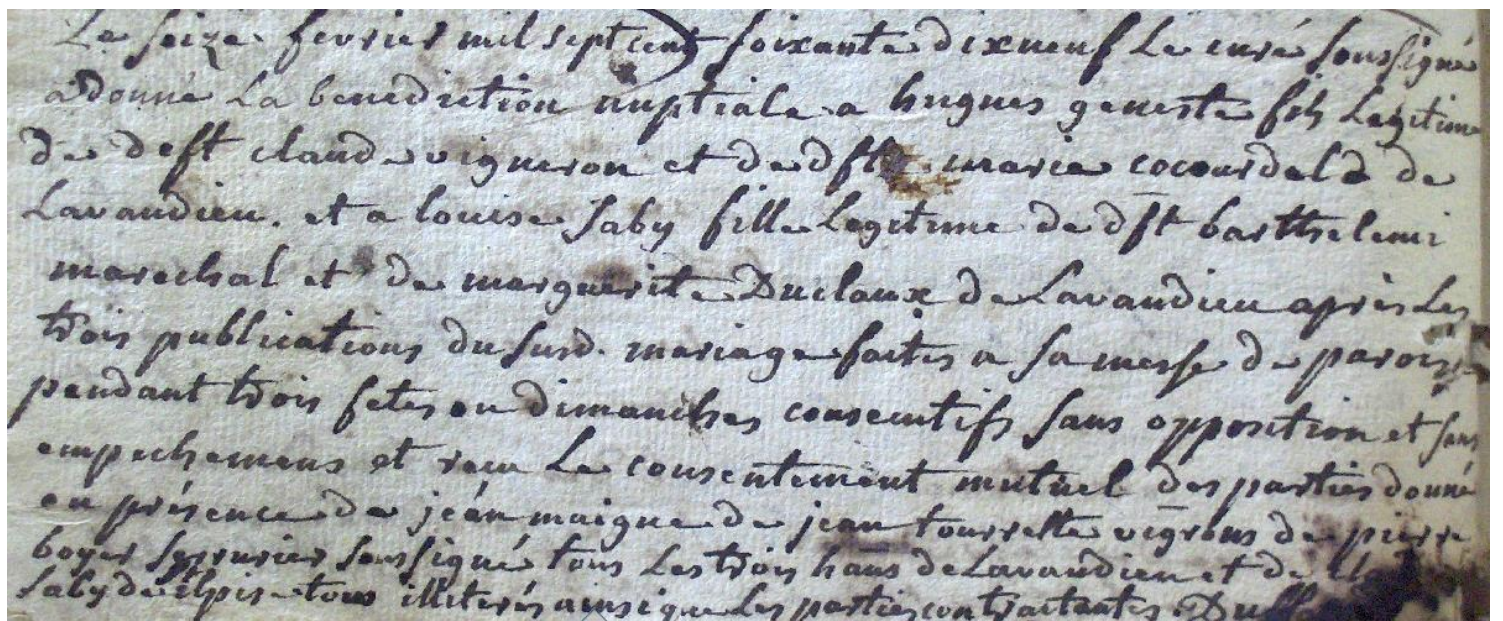 Le seize fevrier mil sept cent soixante dixneuf Le curé soussigné
a donné La benediction nuptiale a hugues geneste fils Legitime
de deft claude vigneron et de dfte marie cocourdele de
Lavaudieu. et a louise saby fille Legitime de dft barthelemi
marechal et de marguerite Duclaux de Lavaudieu après Les
trois publications du susd. mariage faites a sa messe de paroisse
pendant trois fetes ou dimanches consecutifs sans opposition et sans
empechemens et recu Le consentement mutuel des parties donné
en présence de jean maigne de jean tourrette vigrons de pierre
boyer serrurier soussigné tous Les trois hans de Lavaudieu et de
saby tous illiterés ainsi que Les parties contractantes.